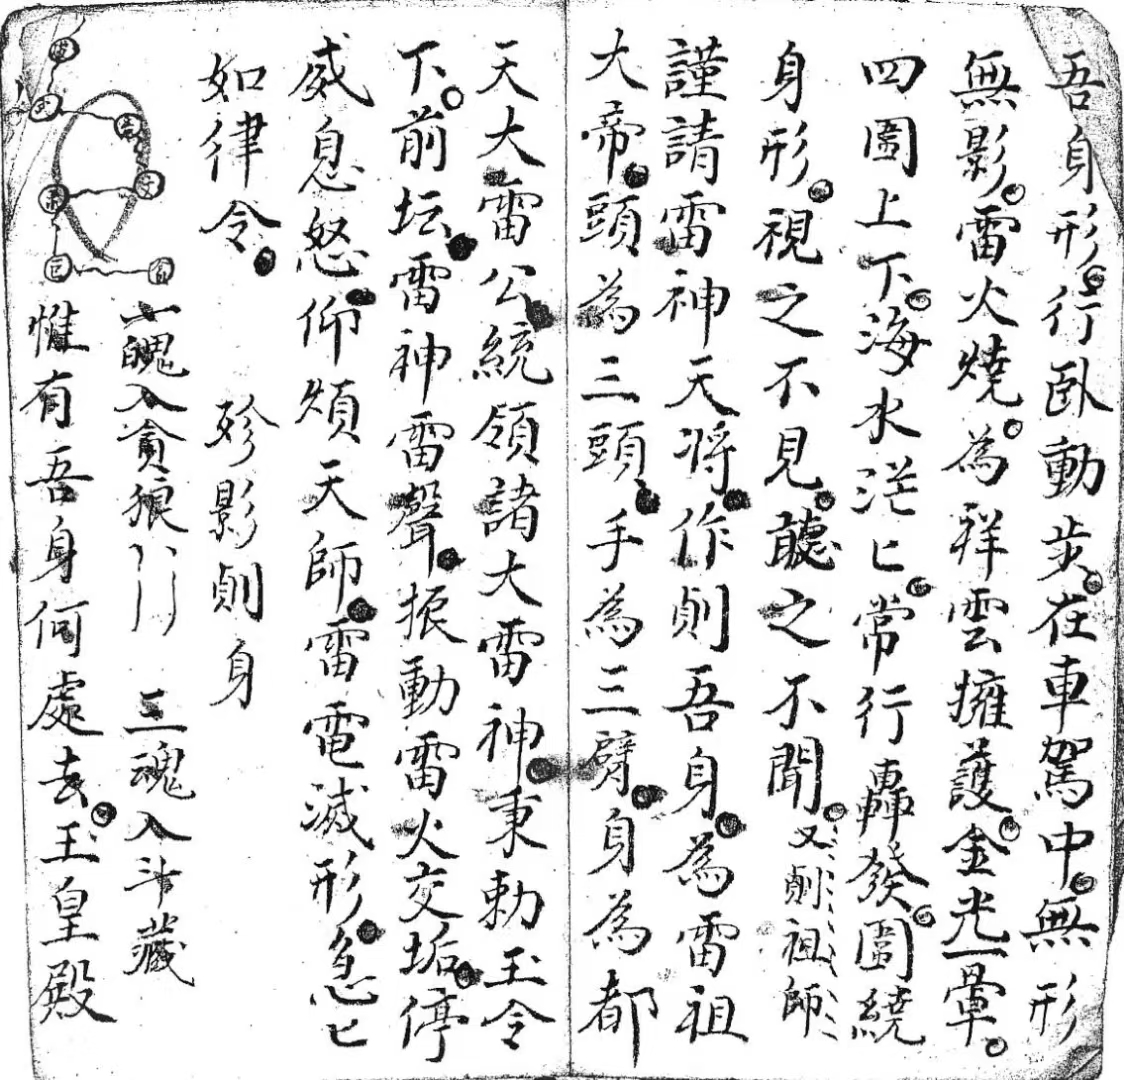 吾身形行卧動步在車駕中無形
無影雷火燒為祥雲擁護金光一暈
四圍上下海水茫匕常行轟發圍繞
身形視之不見聽之不聞又刯祖師
謹請雷神天將作刯吾身為雷祖
大帝頭為三頭手為三臂身為都
天大雷公統領諸大雷神秉勅玉令
下前坛雷神雷聲振動雷火交垢停
威息怒仰煩天師雷電滅形急匕
如律令
殄影刯身
七魄入貪狼
三魂入斗藏
惟有吾身何處去玉皇殿